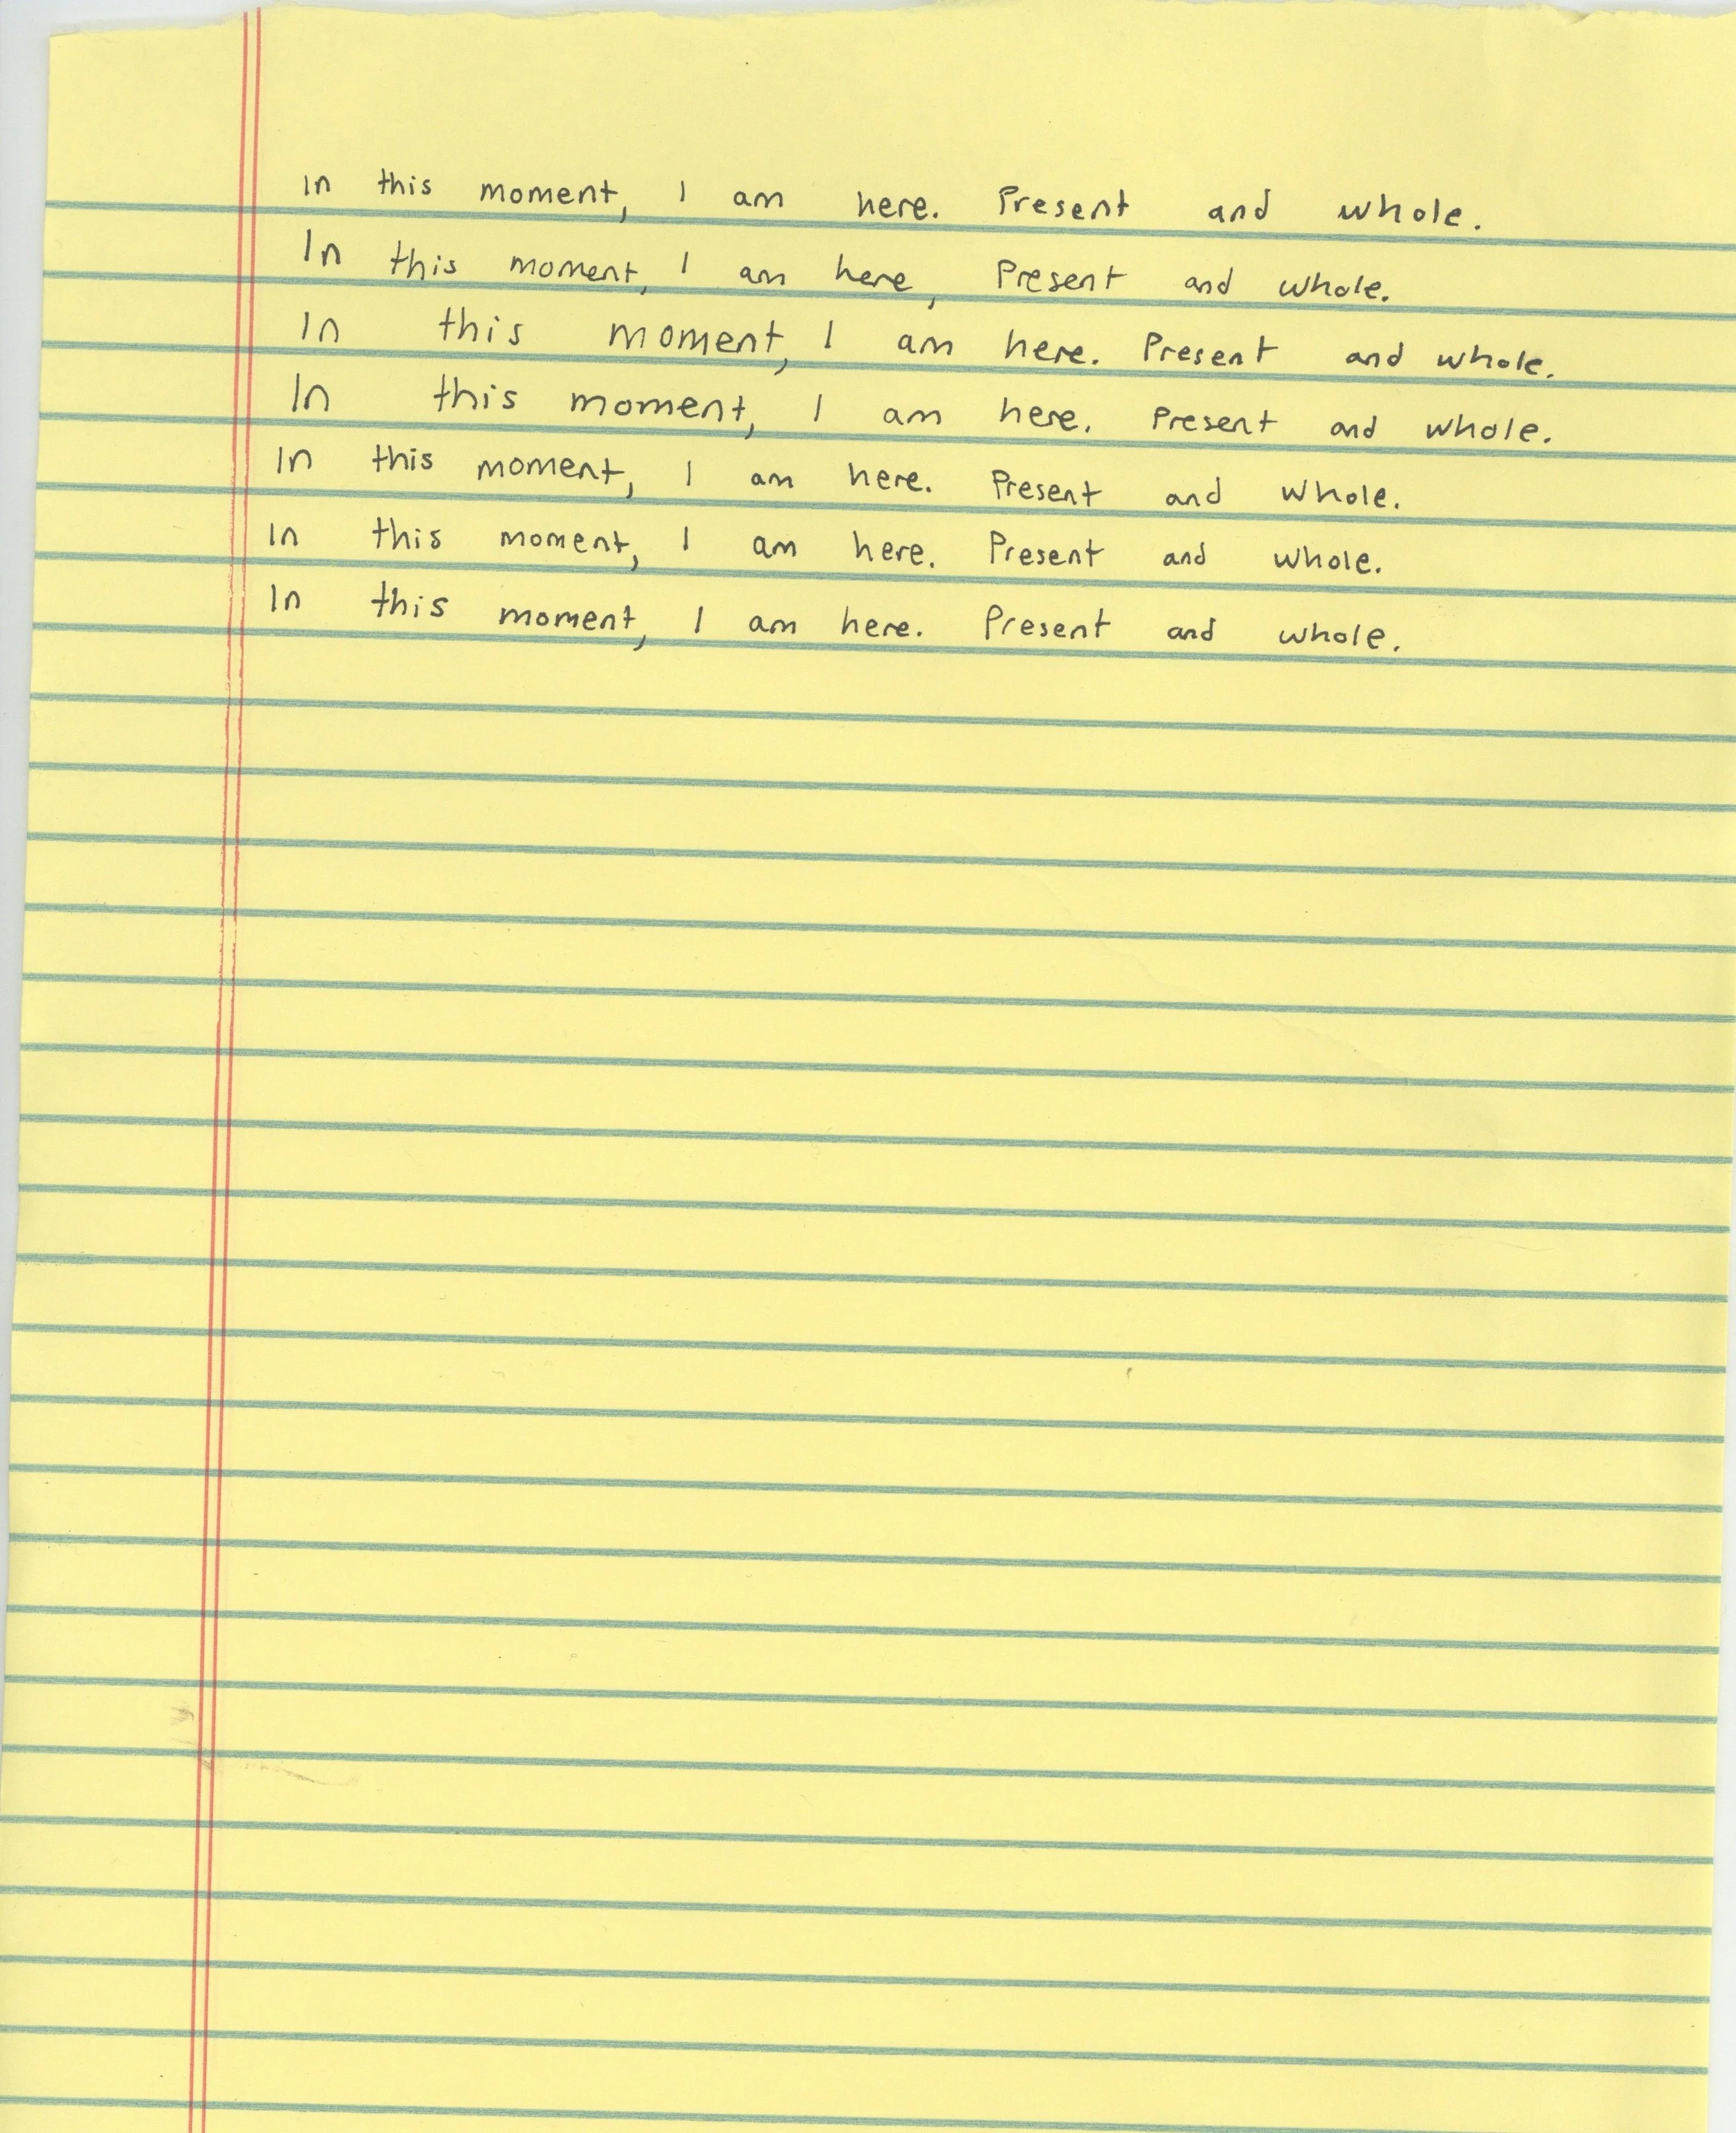 In this moment, I am here. Present and whole.
In this moment, I am here, Present and whole.
In this moment, I am here. Present and whole.
In this moment, I am here. Present and whole.
In this moment, I am here. Present and whole.
In this moment, I am here. Present and whole.
In this moment, I am here. Present and whole.